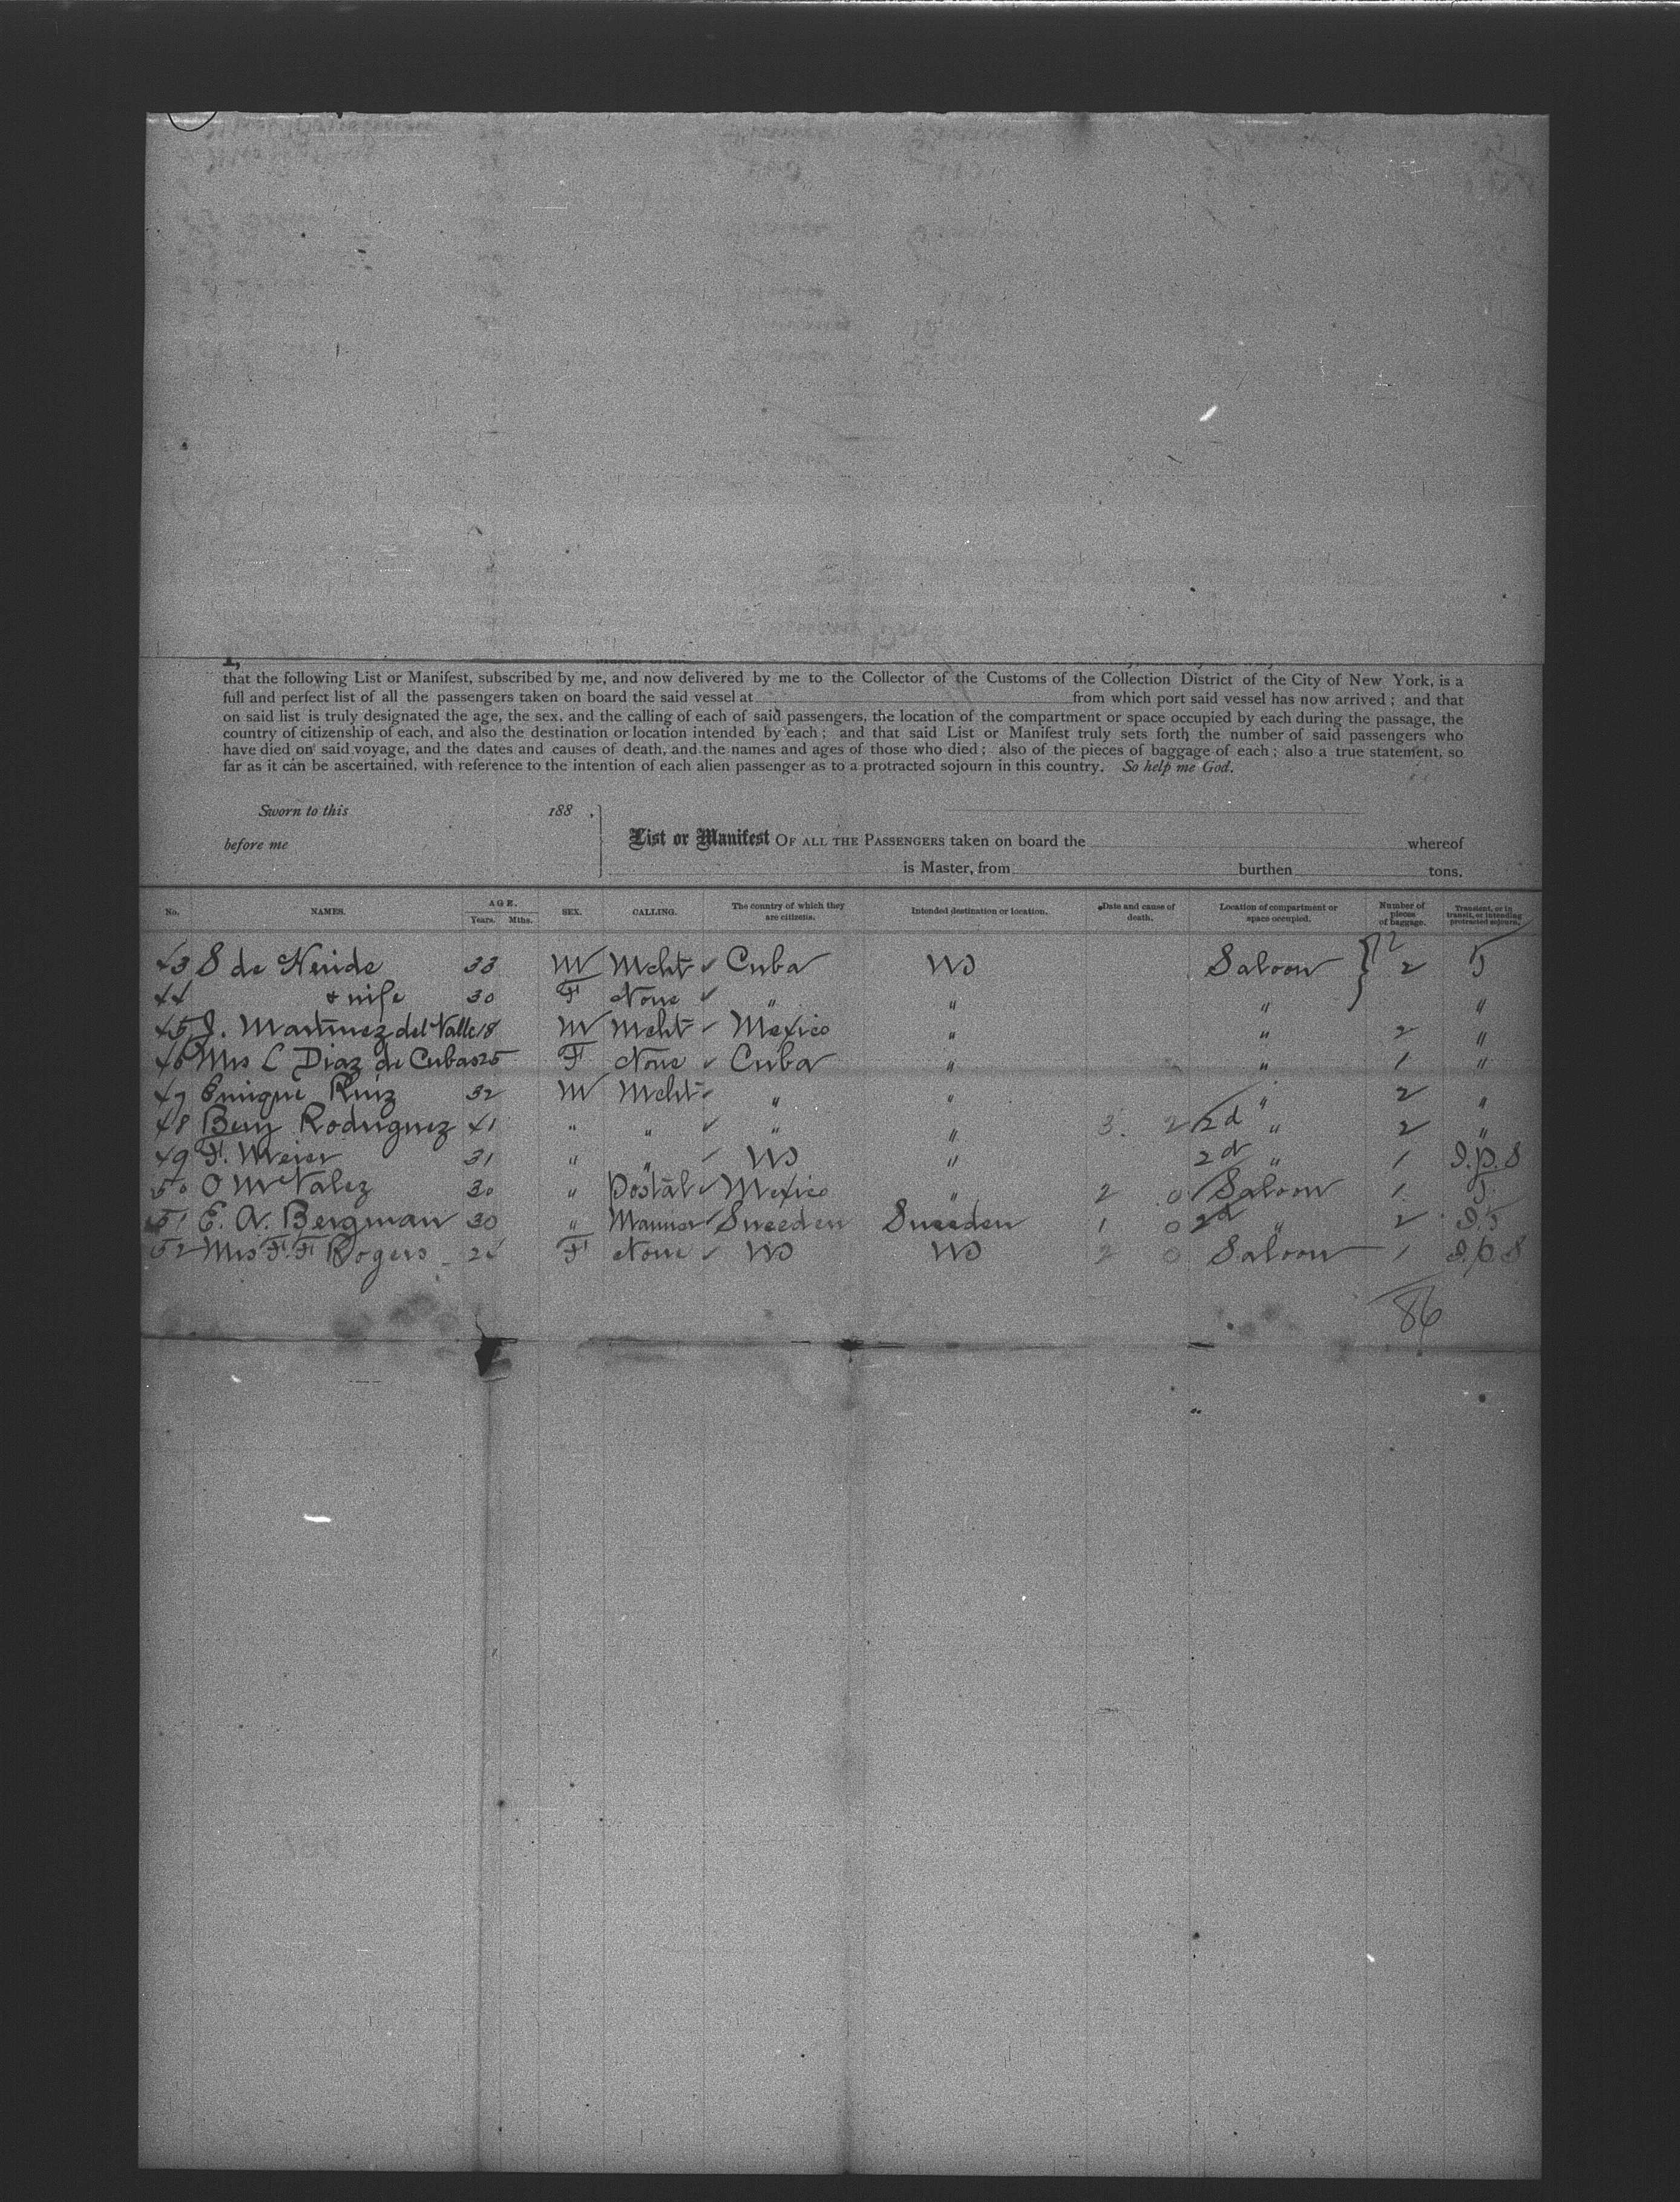 that the following List or Manifest, subscribed by me, and now delivered by me to the Collector of the Customs of the Collection District of the City of New York, is a
full and perfect list of all the passengers taken on board the said vessel at from which port said vessel has now arrived; and that
on said list is truly designated the age, the sex, and the calling of each of said passengers, the location of the compartment or space occupied by each during the passage, the
country of citizenship of each, and also the destination or location intended by each; and that said List or Manifest truly sets forth the number of said passengers who
have died on said voyage, and the dates and causes of death, and the names and ages of those who died; also of the pieces of baggage of each; also a true statement, so
far as it can be ascertained, with reference to the intention of each alien passenger as to a protracted sojourn in this country. So help me God.
Sworn to this 188 .
before me
List or Manifest OF ALL THE PASSENGERS taken on board the whereof
is Master, from burthen tons.
No. NAMES. AGE. Years. Mths. SEX. CALLING. The country of which they are citizens. Intended destination or location. Date and cause of death. Location of compartment or space occupied. Number of pieces of baggage. Transient, or in transit, or intending protracted sojourn.
43 S de 33 M Mcht Cuba Saloon 2 T
44 & wife 30 F None " " " "
45 J. Martinez del Valle 18 M Mcht Mexico " " 2 "
46 Mrs L Diaz de Cubas 25 F None Cuba " " 1 "
47 Enrique Ruiz 32 M Mcht " " " 2 "
48 Benj Rodriguez 41 " " " " 3. 2 2d " 2 "
49 F. Meier 31 " " " 2d " 1 I.p.S
50 O M Valez 30 " Postal Mexico " 2 0 Saloon 1 T
51 E. A. Bergman 30 " Mariner Sweeden Sweeden 1 0 2d " 2 I.T
52 Mrs F. F. Rogers F None 2 0 Saloon 1 I.p.S
86